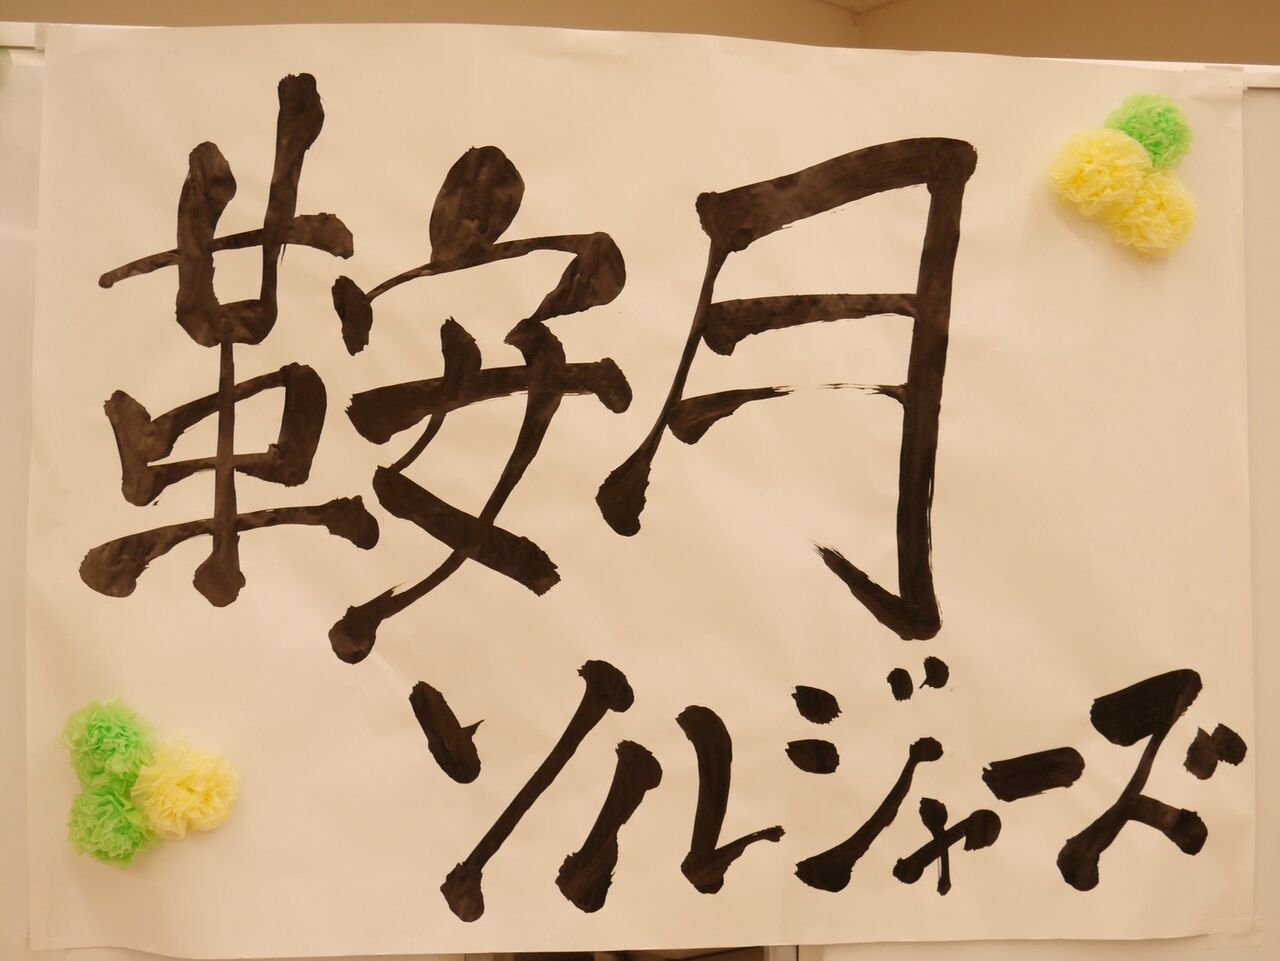 鞍月
ソルジャーズ